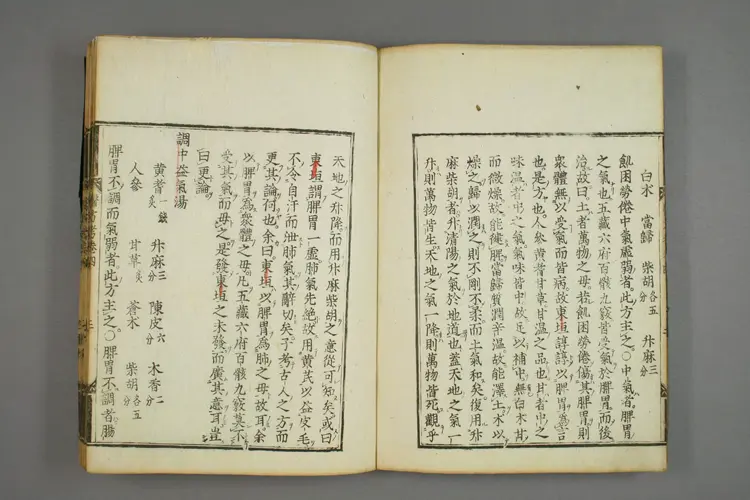 白朮 當歸 柴胡各五分 升麻三分
飢困勞倦中氣虛弱者此方主之○中氣者脾胃
之氣也五藏六府百骸九竅皆受氣於脾胃而後
治故曰土者萬物之母若飢困勞倦傷其脾胃則
眾體無以受氣而皆病故東垣諄諄以脾胃為言
也是方也人參黃耆甘草甘溫之品也甘者中之
味溫者中之氣氣味皆中故足以補中氣白朮甘
而微燥故能健脾當歸質潤辛溫故能澤土朮以
燥之歸以潤之則不剛不柔而土氣和矣復用升
麻柴胡者升清陽之氣於地道也蓋天地之氣一
升則萬物皆生天地之氣一降則萬物皆死觀乎
天地之升降而用升麻柴胡之意從可知矣或曰
東垣謂脾胃一虛肺氣先絕故用黃芪以益皮毛
不令自汗而泄肺氣其辭切矣予考古人之方而
更其論何也余曰東垣以脾胃為肺之母故耳余
以脾胃為眾體之母凡五藏六府百骸九竅莫不
受其氣而母之是發東垣之未發而廣其意耳豈
曰更論
調中益氣湯
黃耆一錢 升麻三分 陳皮六分 木香二分
人參 甘草炙 蒼朮 柴胡各五分
脾胃不調而氣弱者此方主之○脾胃不調者腸